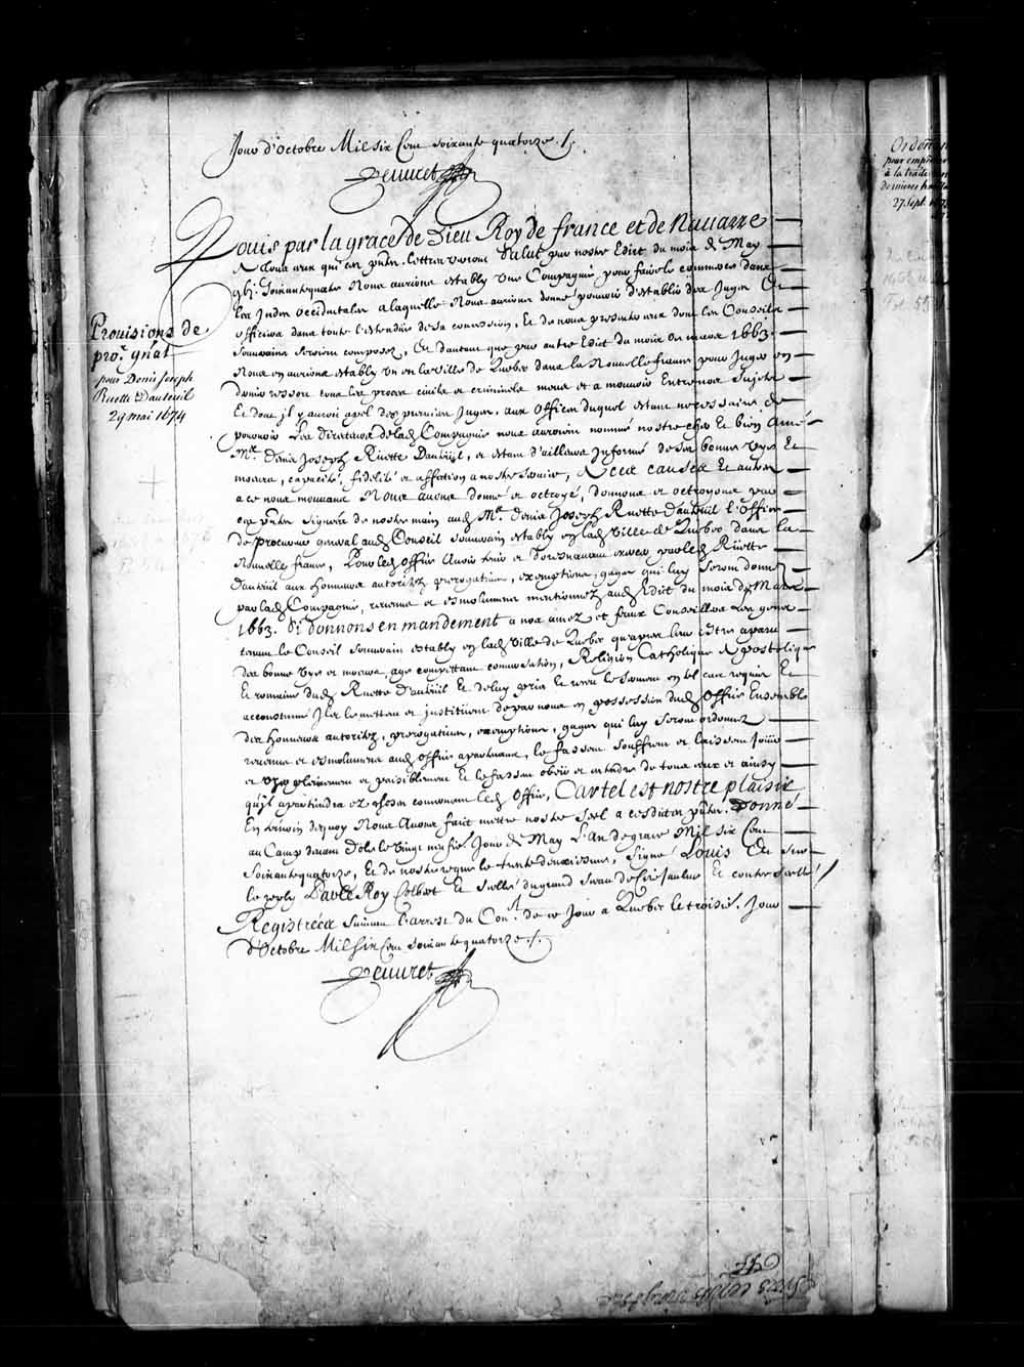 Jour d'octobre Mil six Cent soixante quatorze ./.
Peuuret
Louis par la grace de Dieu Roy de france et de Nauarre
A tous ceux qui ces pntes lettres verront Salut par nostre Edict du mois de May
gbj. Soixante quatre Nous aurions estably une Compagnie pour faire le commerce dans
les Indes occidentales a laquelle Nous aurions donné pouuoir d'establir des Juges Et
officiers dans toute l'estendüe de sa concession, Et de nous presenter ceux dont les Conseils
Souuerains seroient composez, Et dautant que par autre Edict du mois de mars 1663.
Nous en aurions estably un en la ville de Quebec dans la Nouuelle france pour Juger en
dernier ressort tous les procez ciuils et criminels meus et a mouuoir Entre nos Sujets
Et dont jl y auroit apel des premiers Juges, aux Offices duquel estant necessaire de
pouruoir Les Directeurs de lad. Compagnie nous auroient nommé nostre cher Et bien Amé
Mre. Denis Joseph Rüette Dauteüil, et estant d'ailleurs Informé de ses bonnes vyes Et
moeurs, capacité, fidelité et affection a nostre seruice, A ces causes Et autres
a ce nous mouuans Nous auons donné et octroyé, donnons et octroyons par
ces pntes signées de nostre main aud. Mre. Denis Joseph Rüette Dauteüil l'Office
de procureur general aud. Conseil Souuerain estably en lad. Ville de Quebec dans la
Nouuelle france, Pour led. Office Auoir tenir et doresnauant exercer par led. Rüette
Dauteüil aux honneurs autoritez prerogatiues, exemptions, gages qui luy seront donnez
par lad. Compagnie, reuenus et esmolumens mentionnez aud. Edit du mois de Mars
1663. Si donnons en mandement a nos amez et feaux Conseillers Les gens
tenans le Conseil Souuerain estably en lad. Ville de Quebec qu'apres leur estre aparu
des bonnes vyes et moeurs, age competant conuersation, Religion Catholique Apostolique
Et romaine dud. Rüette Dauteüil Et de luy pris Et receu le serment en tel cas requis Et
accoustumé Jls le mettent et jnstitüent de par nous en possession dud. Office Ensemble
des honneurs autoritez, prerogatiues, exemptions, gages qui luy seront ordonnez
reuenus et esmolumens aud. Office apartenans, le fassent souffrent et laissent joüir
et vzer plainement et paisiblement Et le fassent obeir et entendre de tous ceux et ainsy
qu'il apartiendra ez choses concernans led. Office, Car tel est nostre plaisir
En temoin dequoy Nous Auons fait mettre nostre Seel a cesdites pntes. Donné
au Camp deuant Dole le Vingt neufie. Jour de May L'an de grace Mil six Cent
soixante quatorze, Et de nostre regne le trente deuxiesme, Signé Louis Et sur
le reply Par Le Roy Colbert Et scellé du grand sceau de cire jaulne Et contrescellé /
Registrées suiuant l'arrest du Conl. de ce Jour a Quebec le troisie. Jour
d'Octobre Mil six Cent soixante quatorze ./.
Peuuret
Prouisions de
pror. gnal
pour Denis Joseph
Ruette Dauteuil
29 mai 1674
pour
à la traite
27 sept.